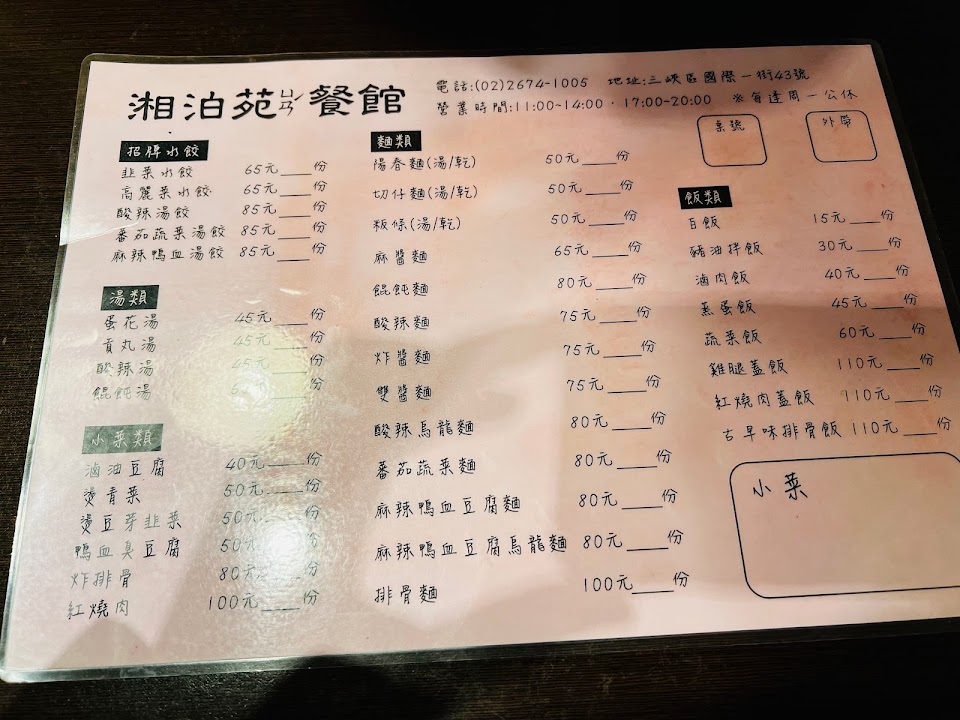 湘泊苑ㄩㄢˋ餐館
電話:(02)2674-1005 地址:三峽區國際一街43號
營業時間:11:00-14:00 · 17:00-20:00 ※每逢周一公休
桌號
外帶
招牌水餃
韭菜水餃 65元____份
高麗菜水餃 65元____份
酸辣湯餃 85元____份
番茄蔬菜湯餃 85元____份
麻辣鴨血湯餃 85元____份
湯類
蛋花湯 45元____份
貢丸湯 45元____份
酸辣湯 45元____份
餛飩湯 ____份
小菜類
滷油豆腐 40元____份
燙青菜 50元____份
燙豆芽韭菜 50元____份
鴨血臭豆腐 50元____份
炸排骨 80元____份
紅燒肉 100元____份
麵類
陽春麵(湯/乾) 50元____份
切仔麵(湯/乾) 50元____份
粄條(湯/乾) 50元____份
麻醬麵 65元____份
餛飩麵 80元____份
酸辣麵 75元____份
炸醬麵 75元____份
雙醬麵 75元____份
酸辣烏龍麵 80元____份
番茄蔬菜麵 80元____份
麻辣鴨血豆腐麵 80元____份
麻辣鴨血豆腐烏龍麵 80元____份
排骨麵 100元____份
飯類
白飯 15元____份
豬油拌飯 30元____份
滷肉飯 40元____份
蒸蛋飯 45元____份
蔬菜飯 60元____份
雞腿蓋飯 110元____份
紅燒肉蓋飯 110元____份
古早味排骨飯 110元____份
小菜